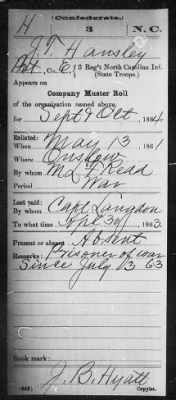 (Confederate.)
H 3 N.C.
J. T. Hansley
Pvt, Co. E, 3 Reg't North Carolina Inf.
(State Troops.)
Appears on
Company Muster Roll
of the organization named above,
for Sept & Oct, 1864
Enlisted:
When May 13 1861
Where Onslow
By whom Ma Read
Period War
Last paid:
By whom Capt Langdon
To what time Apl 30, 1863.
Present or absent Absent
Remarks: Prisoner of war
Since July 13 63
Book mark:
J. B. Hyatt
(642) Copyist.